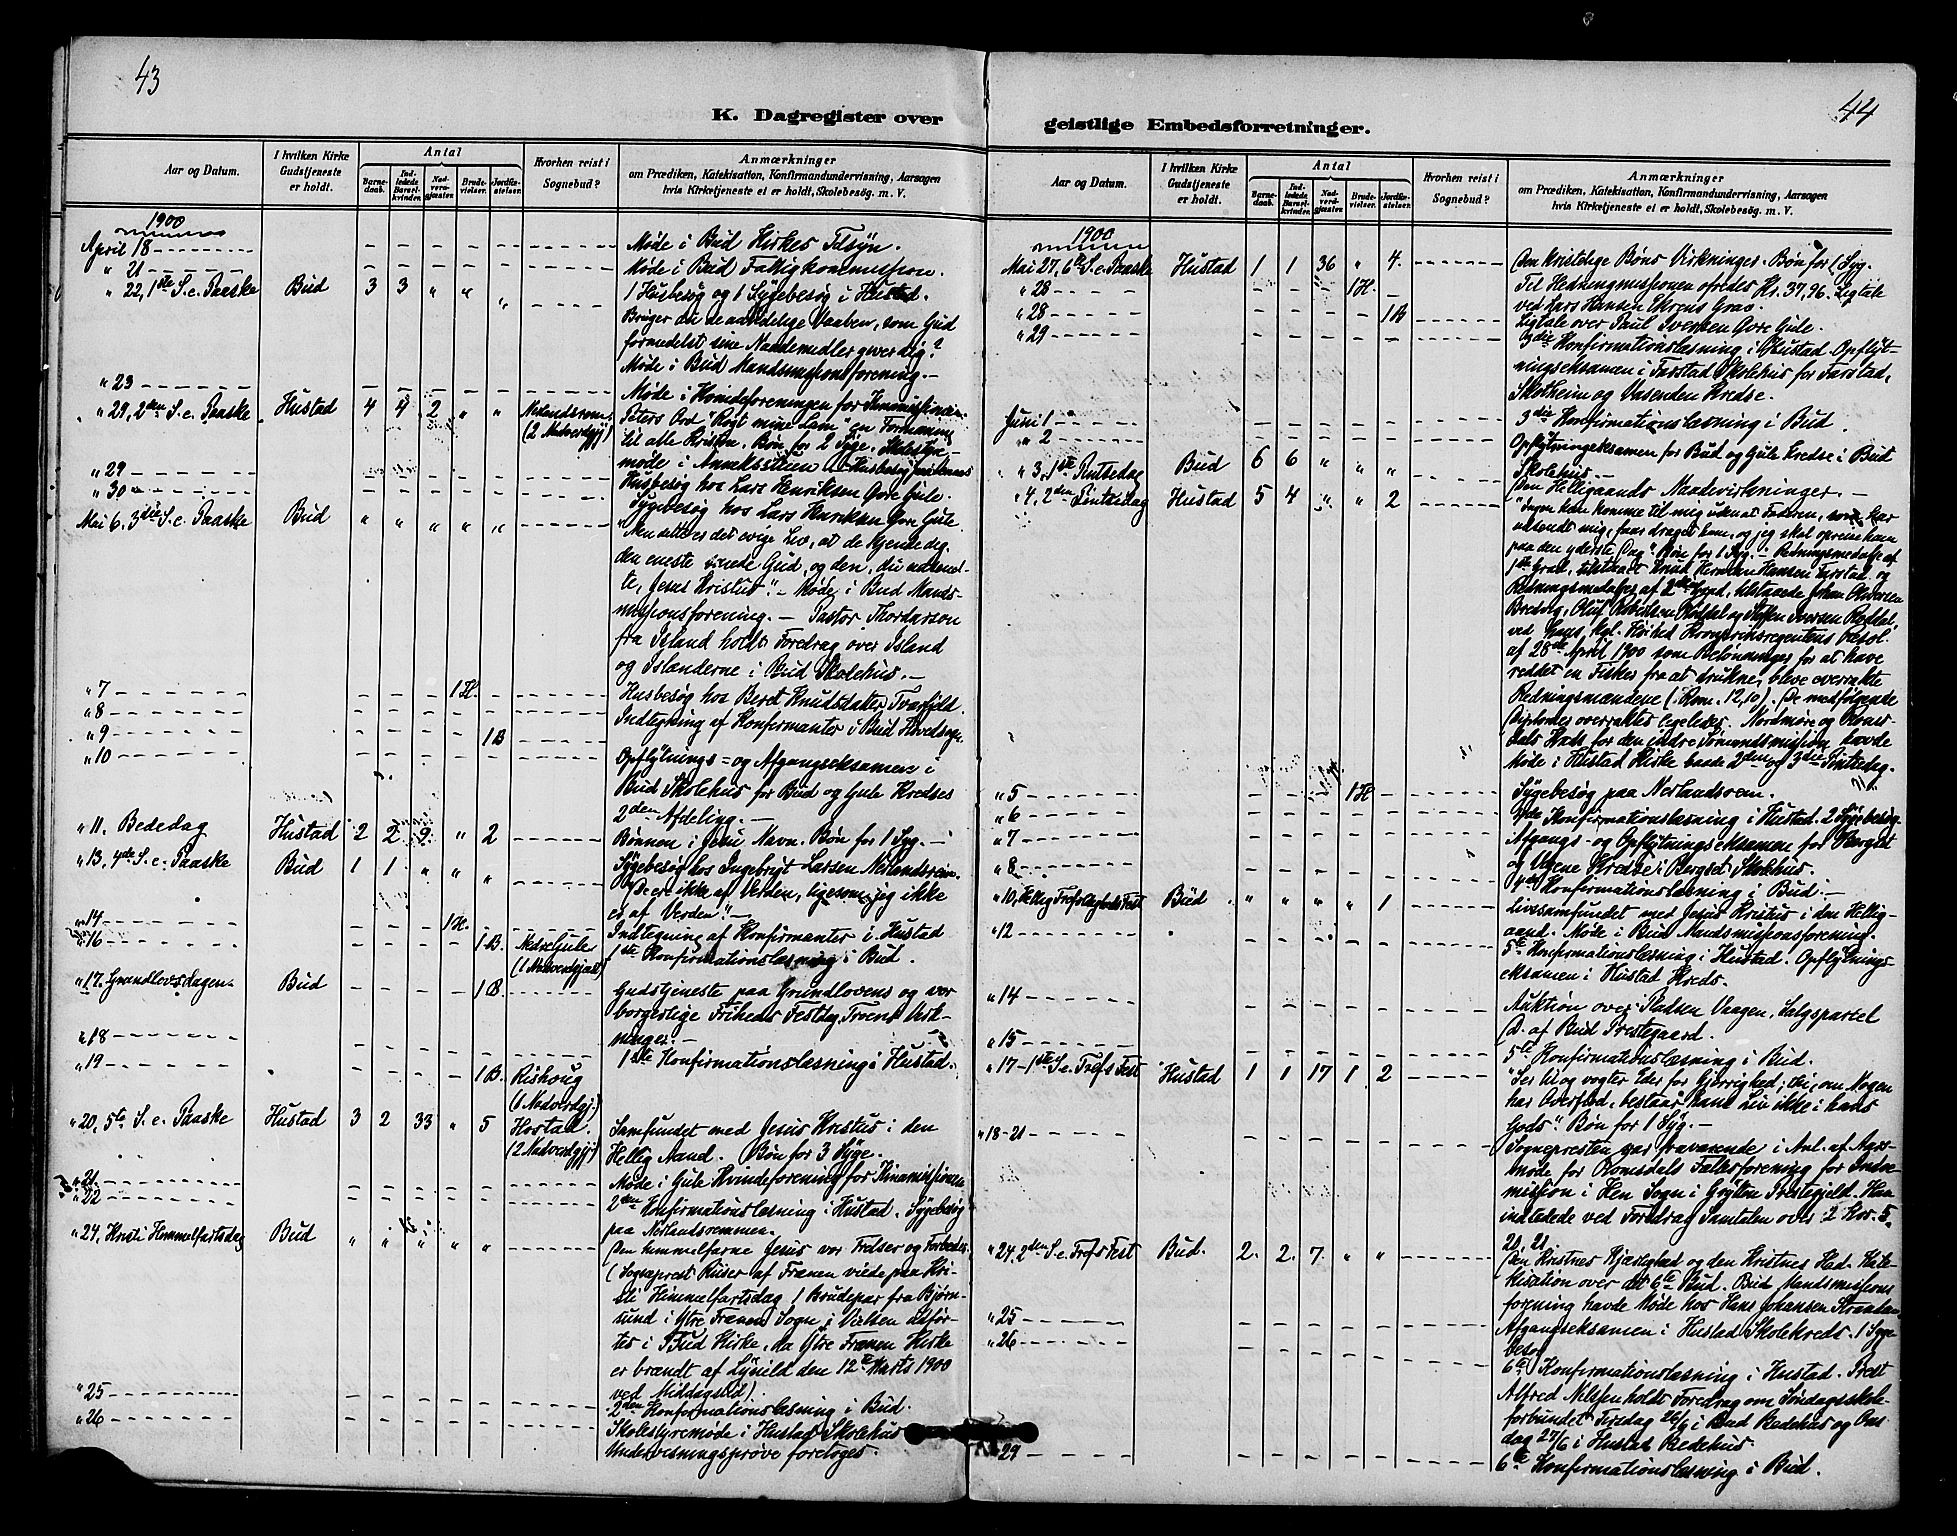 43
K. Dagregister over
Aar og Datum.
I hvilken Kirke Gudstjeneste er holdt.
Antal
Barnedaab.
Indledede Barselkvinder.
Nadvergjæster.
Brudevielser.
Jordfæstelser.
Hvorhen reist i Sognebud?
Anmærkninger
om Prædiken, Katekisation, Konfirmandundervisning, Aarsagen
hvis Kirketjeneste ei er holdt, Skolebesøg. m. V.
1900
April 18 Møde i Bud Kirkes Tilsyn.
" 21 Møde i Bud Fattigkommission.
" 22, 1ste S. e. Paaske Bud 3 3 " " " 1 Husbesøg og 1 Sygebesøg i Hustad.
Bruger du de aandelige Vaaben, som Gud
forundelst sine Naademidler giver dig?
" 23 Møde i Bud Mandsmissionsforening.
" 29, 2den S. e. Paaske Hustad 4 4 2 " " (2 Nadverdgj) Møde i Kvindeforeningen for
Peters Ord "Røgt mine Lam" en Formaning
til alle Kristne. Bøn for 2 syge. Skolestyremøde
" 29
" 30 Husbesøg hos Lars Henriksen Gore Gule.
Mai 6, 3die S. e. Paaske Bud " " " " " Sygebesøg hos Lars Henriksen Gore Gule.
"Men dette er det evige Liv, at de kjende dig,
den eneste sande Gud, og den, du udsendte,
Jesus Kristus". - Møde i Bud Mandsmissionsforening.
- Pastor Thordarson
fra Island holdt Foredrag over Island
og Islænderne i Bud Skolehus.
" 7 1 H. Husbesøg hos Beret Knudsdatter Tverfjeld.
" 8 Indtegning af Konfirmanter i Bud Hovedsogn.
" 9 1 B
" 10 Opflytnings- og Afgangseksamen i
Bud Skolehus for Bud og Gule Kredses
2den Afdeling.
" 11. Bededag Hustad 2 2 9 " 2 Bønnen i Jesu Navn. Bøn for 1 Syg.
" 13. 4de S. e. Paaske Bud 1 1 " " " Sygebesøg hos Ingebrigt Larsen Nerlandsrem.
"De ere ikke af Verden, ligesom jeg ikke
er af Verden".
" 14 1 H. Indtegning af Konfirmanter i Hustad
" 16 1 B. Nedre Gule (1 Nadverdgjæst) 1ste Konfirmationslæsning i Bud.
" 17. Grundlovsdagen Bud 1 B. Gudstjeneste paa Grundlovens og vor
borgerlige Friheds Festdag. Troens Virkninger.
" 18
" 19 1 B. Rishoug (1 Nadverdgj.) 1ste Konfirmationslæsning i Hustad.
" 20, 5te S. e. Paaske Hustad 3 2 33 " 5 Hostad. (2 Nadverdgj) Samfundet med Jesus Kristus i den
Hellig Aand. Bøn for 3 Syge.
" 21 Møde i Gule Kvindeforening for Kinamissionen
" 22 2den Konfirmationslæsning i Hustad. Sygebesøg
paa Nerlandsremmen.
" 24, Kristi Himmelfartsdag Bud " " " " " Den himmelfarne Jesus vor Frelser og Forbeder.
(Sogneprest Riiser af Frænen viede paa Kristi
Himmelfartsdag 1 Brudepar fra Bjørnsund
i Ytre Frænen Sogn i Vielsen udførtes
i Bud Kirke, da Ytre Frænen Kirke
er brændt af Lynild den 12te Marts 1900
ved Middagstid).
" 25 2den Konfirmationslæsning i Bud.
" 26 Skolestyremøde i Hustad Skolehus
Undervisningsprøve foretoges.
44
geistlige Embedsforretninger.
Aar og Datum.
I hvilken Kirke Gudstjeneste er holdt.
Antal
Barnedaab.
Indledede Barselkvinder.
Nadvergjæster.
Brudevielser.
Jordfæstelser.
Hvorhen reist i Sognebud?
Anmærkninger
om Prædiken, Katekisation, Konfirmandundervisning, Aarsagen
hvis Kirketjeneste ei er holdt, Skolebesøg. m. V.
1900
Mai 27, 6te S. e. Paaske Hustad 1 1 36 " 4. Den kristelige Bøns Virkninger. Bøn for 1 Syg.
" 28 1 H. Til Hedningmissionen ofredes Kr. 37,96. Ligtale
ved Lars Hansen
" 28 1 B Ligtale over Paul Iversen Gore Gule.
" 29 3die Konfirmationslæsning i Hustad. Opflytningseksamen
i Farstad Skolehus for Farstad,
Skotheim og Vasenden Kredse.
Juni 1 3die Konfirmationslæsning i Bud.
" 2 Opflytningseksamen for Bud og Gule Kredse i Bud
Skolehus.
" 3, 1ste Pintsedag Bud 6 6 " " " Den Helligaands Naadevirkninger.
" 4, 2den Pintsedag Hustad 5 4 " " 2 "Ingen kan komme til mig uden at Faderen, som har
udsendt mig, faar draget ham, og jeg skal opreise ham
paa den yderste Dag". Bøn for 1 Syg. - Redningsmedalje af
1ste Grad, tilstaaet Knud Herman Hansen Farstad og
Redningsmedaljer af 2den Grad, tilstaaede Johan Olversen
Bredvig, Oluf Robertsen Kolskel og Steffen Iversen Røddal,
ved Hans Kgl. Høihed Kronprinsregentens Resol.
af 28de April 1900 som Belønninger for at have
reddet en Fisker fra at drukne, bleve overrakte
Redningsmændene (Rom. 12, 10). De medfølgende
Diplomer overraktes ligeledes. Nordmøre og Romsdals
Kreds for den indre Sømandsmission havde
Møde i Hustad Kirke baade 2den og 3die Pintsedag.
" 5 1 H Sygebesøg paa Nerlandsrem.
" 6 4de Konfirmationslæsning i Hustad. 2 Sygebesøg.
" 7 Afgangs- og Opflytningseksamen for Bergset
og Vevne Kredse i Bergset Skolehus.
" 8 4de Konfirmationslæsning i Bud.
" 10, Hellig Trefoldigheds Fest Bud " " " " 1 Livssamfundet med Jesus Kristus i den Helligaand.
Møde i Bud Mandsmissionsforening.
" 12 5te Konfirmationslæsning i Hustad. Opflytningseksamen
i Hustad Kreds.
" 14 Auktion over Pladsen Vaagen, Salgsparcel
D. af Bud Prestegaard.
" 15 5te Konfirmationslæsning i Bud.
" 17 - 1ste S. e. Tref. Fest Hustad 1 1 17 1 2 "Ser til og vogter Eder for Gjerrighed; thi, om Nogen
har Overflod, bestaar hans Liv ikke i hans
Gods". Bøn for 1 Syg.
" 18-21 Sognepresten var fraværende i Anl. af Aarsmøde
for Romsdals Fællesforening for Indremission
i Hen Sogn i Grytten Prestegjeld. Han
indledede ved Foredrag Samtalen over 2 Kor. 5,
20, 21.
" 24, 2den S. e. Tref. Fest Bud. 2. 2. 7. " " Den Kristnes Kjærlighed og den Kristnes Had. Katekisation
over det 6te Bud. Bud Mandsmissionsforening
havde Møde hos Hans Johansen
" 25 Afgangseksamen i Hustad Skolekreds. 1 Sygebesøg
" 26 6te Konfirmationslæsning i Hustad. Prest
Alfred Nilssen holdt Foredrag om Søndagsskoleforbundet
Tirsdag 26/6 i Bud Bedehus og Onsdag
27/6 i Hustad Bedehus.
" 29 6te Konfirmationslæsning i Bud.